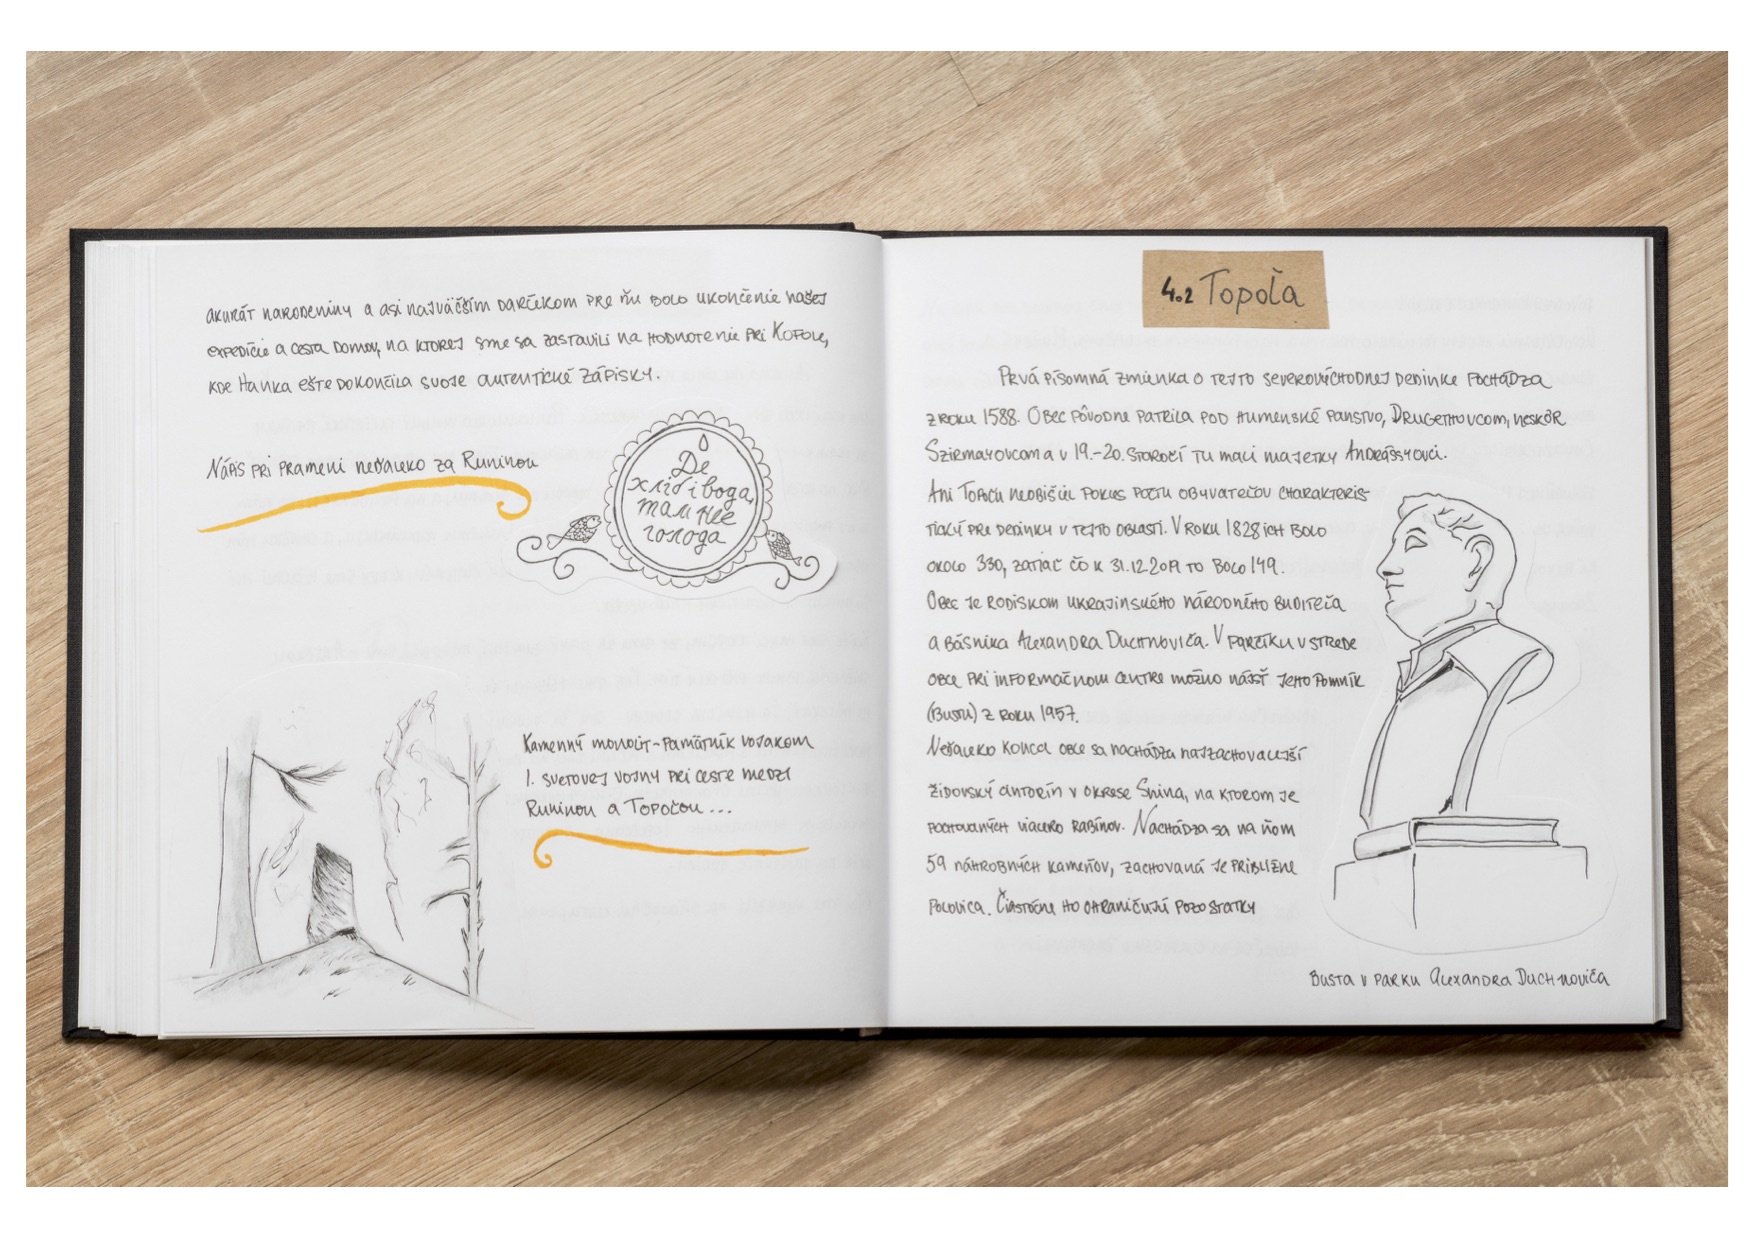 akurát narodeniny a asi najväčším darčekom pre ňu bolo ukončenie našej
expedície a cesta domov, na ktorej sme sa zastavili na hodnotenie pri Kofole,
kde Hanka ešte dokončila svoje autentické zápisky.
Nápis pri prameni neďaleko za Runinou
Де
хліб і вода,
там нее
голода
Kamenný monolit-pamätník vojakom
1. svetovej vojny pri ceste medzi
Runinou a Topoľou...
4.2 Topoľa
Prvá písomná zmienka o tejto severovýchodnej dedinke pochádza
z roku 1588. Obec pôvodne patrila pod humenské panstvo, Drugethovcom, neskôr
Szirmayovcom a v 19.-20. storočí tu mali majetky Andrássyovci.
Ani Topoľu neobišiel pokus počtu obyvateľov charakteris-
tický pre dedinky v tejto oblasti. V roku 1828 ich bolo
okolo 330, zatiaľ čo k 31.12.2019 to bolo 149.
Obec je rodiskom ukrajinského národného buditeľa
a básnika Alexandra Duchnoviča. V parčíku v strede
obce pri informačnom centre možno nájsť jeho pomník
(bustu) z roku 1957.
Neďaleko konca obce sa nachádza najzachovalejší
židovský cintorín v okrese Snina, na ktorom je
pochovaných viacero rabínov. Nachádza sa na ňom
59 náhrobných kameňov, zachovaná je približne
polovica. Čiastočne ho ohraničujú pozostatky
Busta v parku Alexandra Duchnoviča